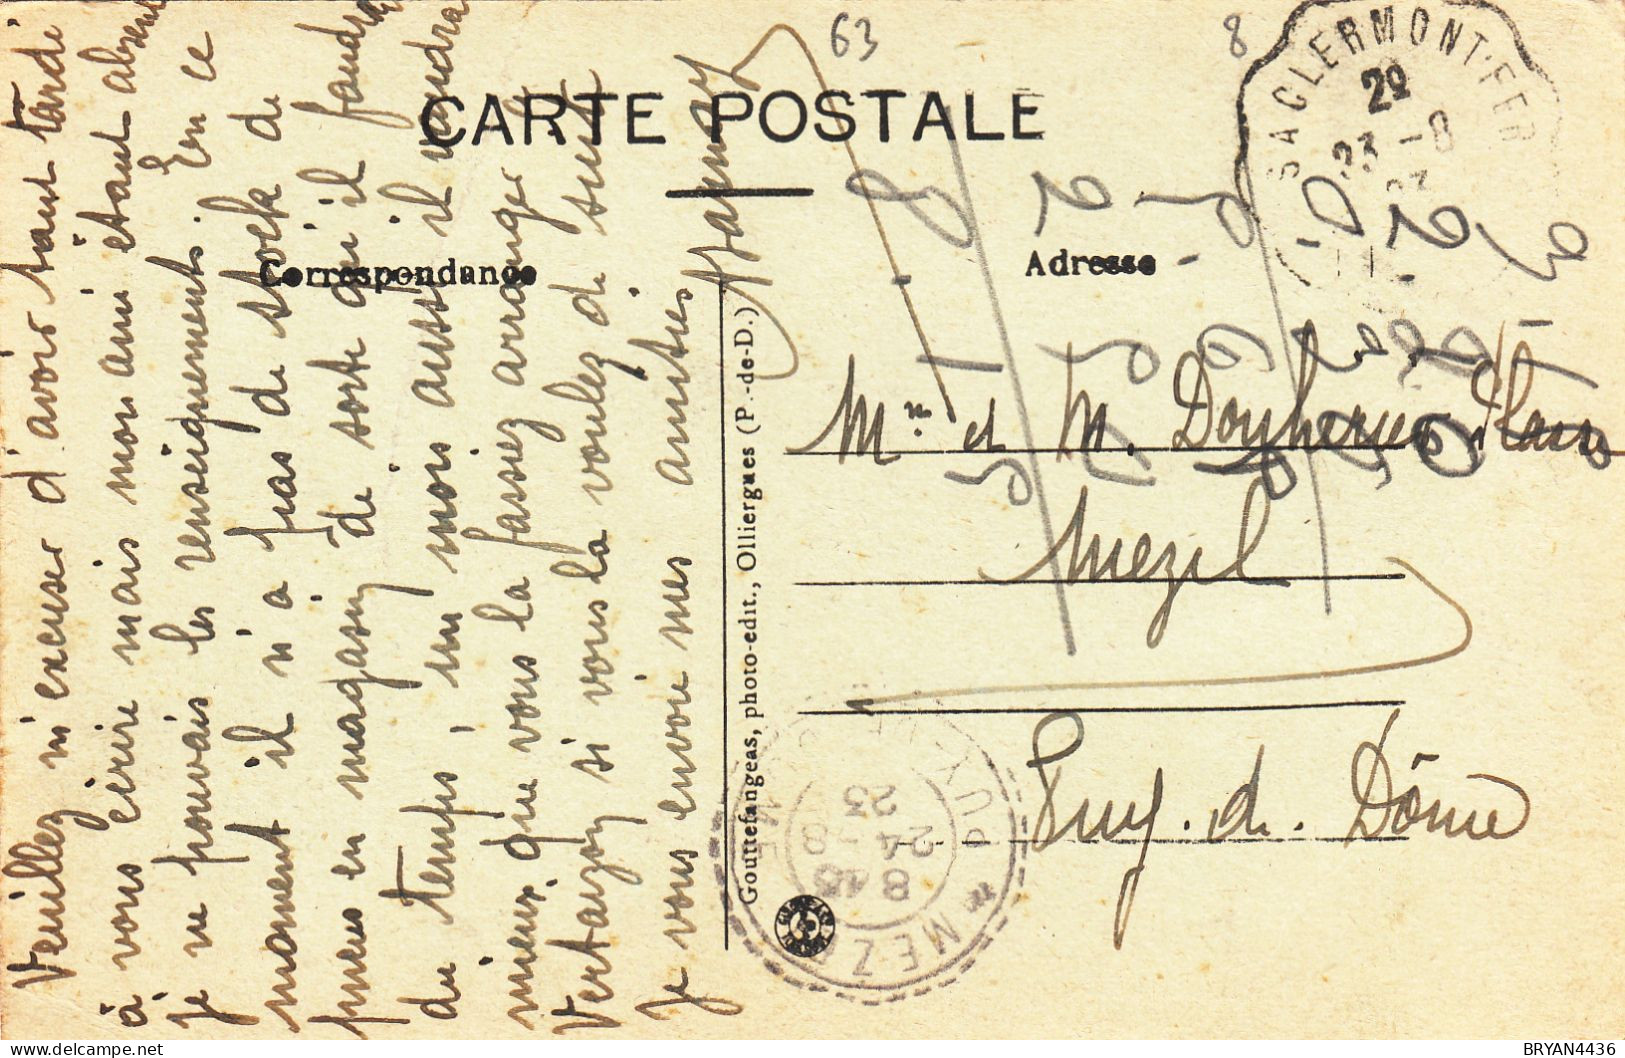 63
8
CARTE POSTALE
Correspondance
Adresse
SA CLERMONT-FER
29
23 -8
Veuillez m'excuser d'avoir tant tardé
à vous écrire mais mon ami étant absent
je ne pouvais les renseignements. En ce
moment il n'a pas de stock de
pneus en magasin de sorte qu'il faudra
du temps, un mois aussi il vaudra
mieux que vous la fassiez arranger à
Vertaizon si vous la voulez de suite
Je vous envoie mes amitiés
Mme et M.
Mezel
Puy. de. Dôme
Gouttefangeas, photo-edit., Olliergues (P.-de-D.)
MEZEL
PUY
8 45
24 - 8
23
delcampe.net
BRYAN4436